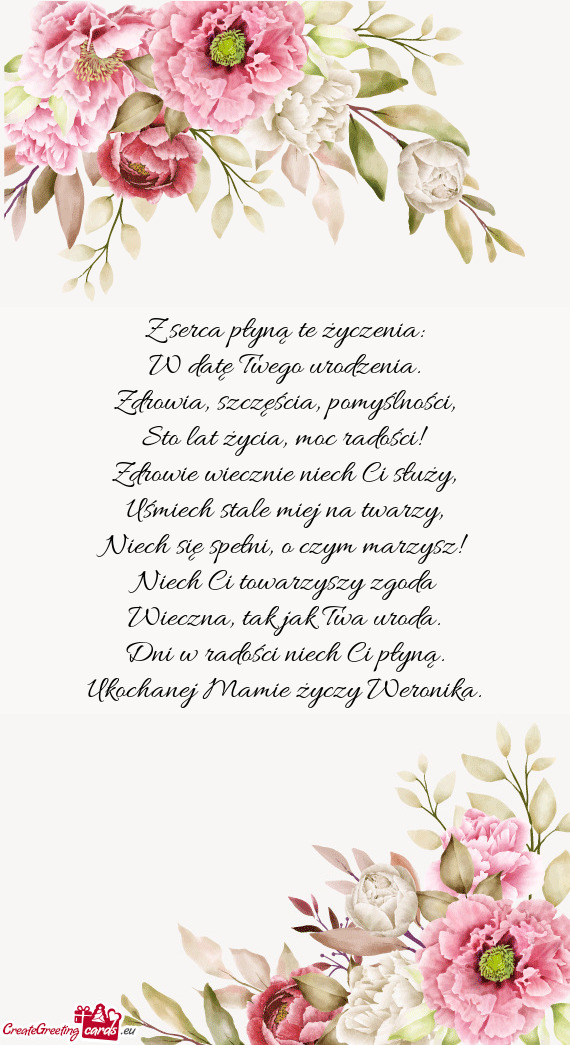 Z serca płyną te życzenia:
W datę Twego urodzenia.
Zdrowia, szczęścia, pomyślności,
Sto lat życia, moc radości!
Zdrowie wiecznie niech Ci służy,
Uśmiech stale miej na twarzy,
Niech się spełni, o czym marzysz!
Niech Ci towarzyszy zgoda
Wieczna, tak jak Twa uroda.
Dni w radości niech Ci płyną.
Ukochanej Mamie życzy Weronika.
CreateGreeting cards .eu